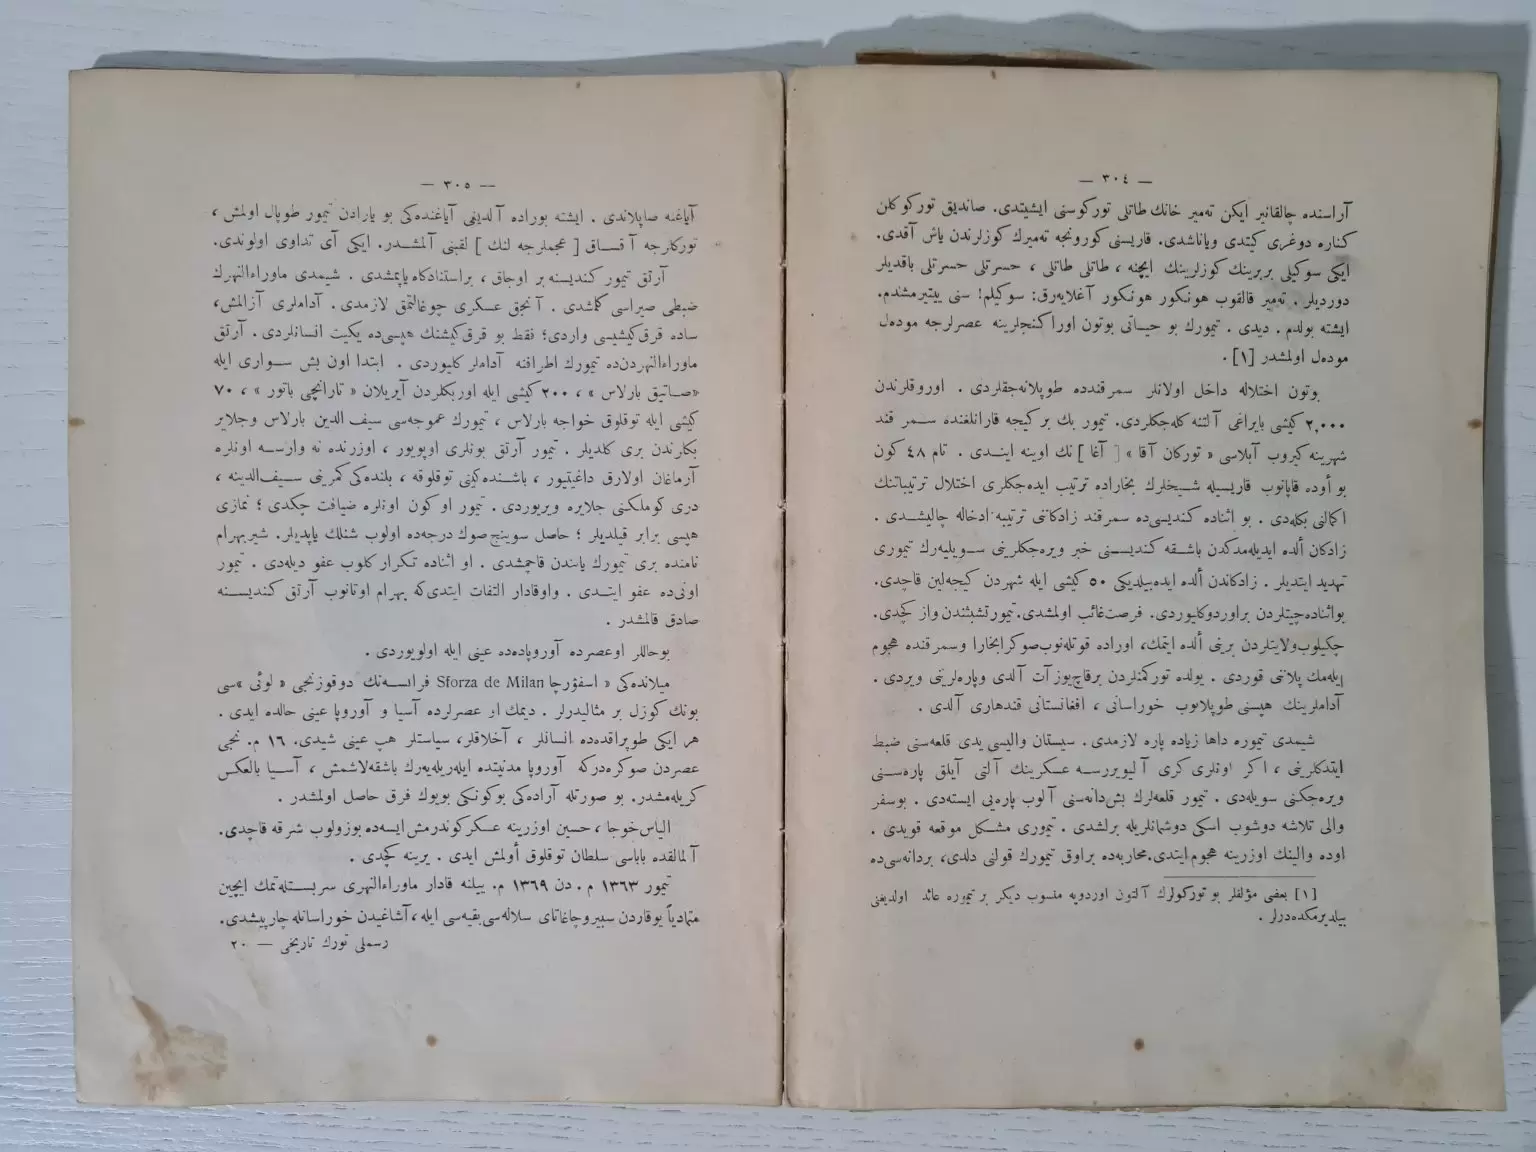 — ٣٠٤ —
آراسنده چالقانیر ایکن ته‌میر خانك طاتلی تورکوسنی ایشیتدی. صاندیق تورکوکلن
کناره دوغری کیتدی ویاناشدی. قاریسنی کورونجه ته‌میرك کوزلرندن یاش آقدی.
ایکی سوکیلی بربرینك کوزلرینك ایچنه ، طاتلی طاتلی ، حسرتلی حسرتلی باقدیلر
دوردیلر . ته‌میر قالقوب هونکور هونکور آغلایه‌رق: سوکیلم! سنی ییتیرمشدم.
ایشته بولدم . دیدی . تیمورك بو حیـاتی بوتون اوراکنجلرینه عصرلرجه موده‌ل
موده‌ل اولمشدر [١] .
بوتون اختلاله داخل اولانلر سمرقندده طوپلانه‌جقلردی . اوروقلرندن
٢,٠٠٠ کیشی بایراغی آلتنه کله‌جکلردی. تیمور بك بر کیجه قارانلغنده سـمر قند
شهرینه کیروب آبلاسی « تورکان آقا » [ آغا ] نك اوینه اینـدی . تام ٤٨ کون
بو أوده قاپانوب قاریسیله شـیخلرك بخاراده ترتیب ایده‌جکلری اختلال ترتیباتنك
اکمالنی بکله‌دی . بو اثناده کندیسی‌ده سمرقند زادکاننی ترتیبه ادخاله چالیشـدی .
زادکان ألده ایدیله‌مدکدن باشـقه کندیسـنی خبر ویره‌جکلرینی سـویلیه‌رك تیموری
تهدید ایتدیلر . زادکاندن ألده ایده‌بیلدیکی ٥٠ کیشی ایله شهردن کیجه‌لین قاچدی.
بواثناده‌چیتلردن براوردوکلیوردی. فرصت‌غائب اولمشدی.تیمورتشبثندن واز کچدی.
چکیلوب‌ولایتلردن برینی ألده ایتمك، اوراده قوتله‌نوب‌صوکرابخارا وسمرقنده هجوم
ایله‌مك پلاننی قوردی . یولده تورکمنلردن برقاچ‌یوزآت آلدی وپاره‌لرینی ویردی .
آداملرینك هپسنی طوپلایوب خوراسانی ، افغانستانی قندهاری آلدی .
شیمدی تیموره داها زیاده پاره لازمدی . سیستان والیسی یدی قلعه‌سنی ضبط
ایتدکلرینی ، اکر اونلری کری آلیویررسه عسکرینك آلتی آیلق پاره‌سـنی
ویره‌جکنی سویله‌دی . تیمور قلعه‌لرك بش‌دانه‌سنی آلوب پاره‌یی ایسته‌دی . بوسفر
والی تلاشه دوشوب اسکی دوشمانلریله برلشدی . تیموری مشـکل موقعه قویدی .
اوده والینك اوزرینه هجوم ایتدی.محاربه‌ده براوق تیمورك قولنی دلدی، بردانه‌سی‌ده
[١] بعضی مؤلفلر بو تورکولرك آلتون اوردویه منسوب دیکر بر تیموره عائد اولدیغنی
بیلدیرمکده‌درلر .
— ٣٠٥ —
آیاغنه صاپلاندی . ایشته بوراده آلدیغی آیاغنده‌کی بو یارادن تیمور طوپال اولمش ،
تورکلرجه آقسـاق [ عجملرجه لنك ] لقبنی آلمشـدر. ایکی آی تداوی اولوندی.
آرتق تیمور کندیسنه بر اوجاق ، براستنادکاه یاپمشدی . شیمدی ماوراءالنهرك
ضبطی صیراسی کلمشدی . آنجق عسکری چوغالتمق لازمدی . آداملری آزالمش،
ساده قرق‌کیشیسی واردی؛ فقط بو قرق‌کیشنك هپسی‌ده یکیت انسانلردی . آرتق
ماوراءالنهردن‌ده تیمورك اطرافنه آداملر کلیوردی . ابتدا اون بش سـواری ایله
«صـاتیق بارلاس » ، ٢٠٠ کیشی ایله اوزبکلردن آیریلان « تارانچی باتور » ، ٧٠
کیشی ایله توقلوق خواجه بارلاس ، تیمورك عموجه‌سی سیف الدین بارلاس وجلایر
بکلرندن بری کلدیلر . تیمور آرتق بونلری اوپویور ، اوزرنده نه وارسـه اونلره
آرماغان اولارق داغیتیور ، باشـنده‌کینی توقلوقه ، بلنده‌کی کمرینی سـیف‌الدینه ،
دری کوملکنی جلایره ویریوردی . تیمور او کون اونلره ضیافت چکدی ؛ نمازی
هپسی برابر قیلدیلر ؛ حاصل سوینج صوك درجه‌ده اولوب شنلك یاپدیلر. شیربهرام
نامنده بری تیمورك یانندن قاچمشدی . او اثناده تکرار کلوب عفو دیله‌دی . تیمور
اونی‌ده عفو ایتـدی . واوقادار التفات ایتدی‌که بهرام اوتانوب آرتق کندیسـنه
صادق قالمشدر .
بوحاللر اوعصرده آوروپاده‌ده عینی ایله اولویوردی .
میلانده‌کی « اسفورچا Sforza de Milan فرانسـه‌نك دوقوزنجی « لوئی »سی
بونك کوزل بر مثالیدرلر . دیمك او عصرلرده آسیا و آوروپا عینی حالده ایدی .
هر ایکی طوپراقده‌ده انسانلر ، آخلاقلر، سیاستلر هپ عینی شیدی. ١٦ م. نجی
عصردن صوکره‌درکه آوروپا مدنیتده ایله‌ریله‌یه‌رك باشقه‌لاشمش ، آسیا بالعکس
کریله‌مشدر. بو صورتله آراده‌کی بوکونکی بویوك فرق حاصل اولمشدر .
الیاس‌خوجا ، حسین اوزرینه عسکرکوندرمش ایسه‌ده بوزولوب شرقه قاچدی.
آلمالقده باباسی سلطان توقلوق أولمش ایدی . یرینه کچدی .
تیمور ١٣٦٣ م . دن ١٣٦٩ م. ییلنه قادار ماوراءالنهری سربستله‌تمك ایچین
متمادیاً یوقاردن سیبروچاغاتای سلاله‌سی‌بقیه‌سی ایله، آشاغیدن خوراسانله‌چارپیشدی.
رسملی تورك تاریخی — ٢٠